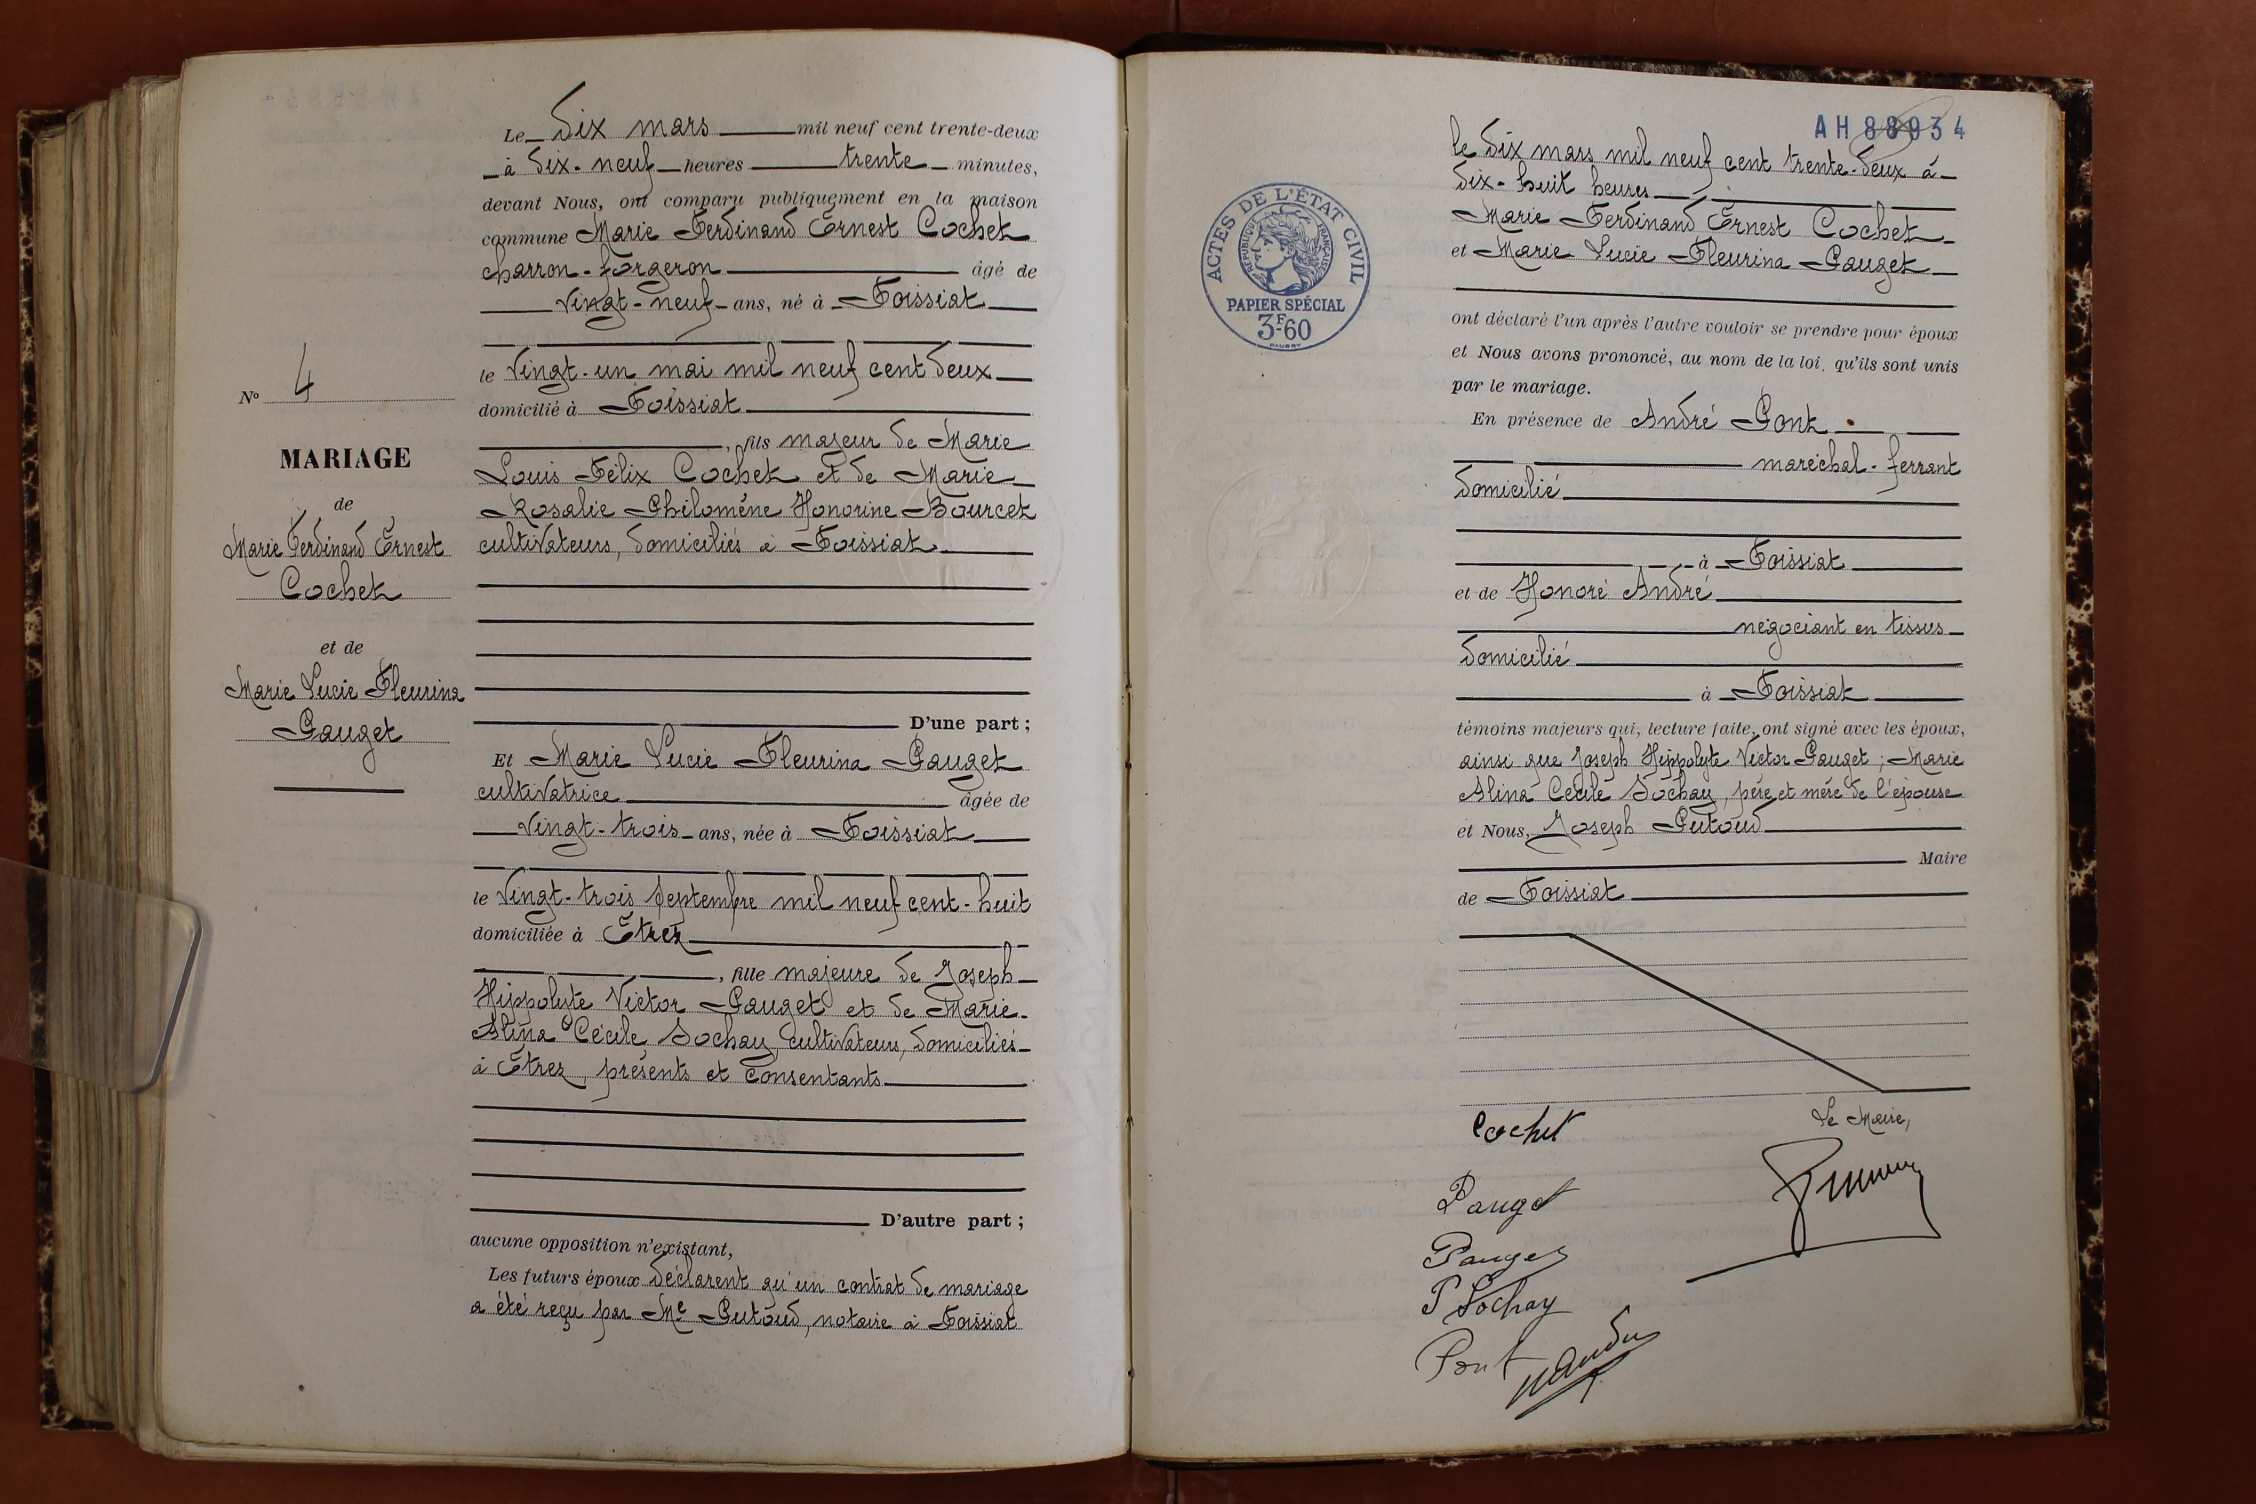 Le dix mars mil neuf cent trente-deux
à dix-neuf heures trente minutes,
devant Nous, ont comparu publiquement en la maison
commune Marie Ferdinand Ernest Cochet
charron-forgeron âgé de
vingt-neuf ans, né à Foissiat
le vingt-un mai mil neuf cent deux
domicilié à Foissiat
, fils majeur de Marie
Louis Félix Cochet et de Marie
Rosalie Philomène Honorine Bourcet
cultivateurs, domiciliés à Foissiat
D'une part ;
Et Marie Lucie Fleurina Pauget
cultivatrice âgée de
vingt-trois ans, née à Foissiat
le vingt-trois septembre mil neuf cent-huit
domiciliée à Étrez
, fille majeure de Joseph
Hippolyte Victor Pauget et de Marie
Alina Cécile Sochay cultivateurs, domiciliés
à Étrez, présents et consentants
D'autre part ;
aucune opposition n'existant,
Les futurs époux déclarent qu'un contrat de mariage
a été reçu par Me Putoud, notaire à Foissiat
No 4
MARIAGE
de
Marie Ferdinand Ernest
Cochet
et de
Marie Lucie Fleurina
Pauget
AH 88934
ACTES DE L'ÉTAT CIVIL
RÉPUBLIQUE FRANÇAISE
PAPIER SPÉCIAL
3F60
le dix mars mil neuf cent trente-deux à
dix-huit heures
Marie Ferdinand Ernest Cochet
et Marie Lucie Fleurina Pauget
ont déclaré l'un après l'autre vouloir se prendre pour époux
et Nous avons prononcé, au nom de la loi, qu'ils sont unis
par le mariage.
En présence de André Pont
maréchal-ferrant
domicilié
à Foissiat
et de Honoré André
négociant en tissus
domicilié
à Foissiat
témoins majeurs qui, lecture faite, ont signé avec les époux,
ainsi que Joseph Hippolyte Victor Pauget ; Marie
Alina Cécile Sochay, père et mère de l'épouse
et Nous, Joseph Putoud
Maire
de Foissiat
Cochet
Le Maire,
Pauget
Pauget
P Sochay
Pont